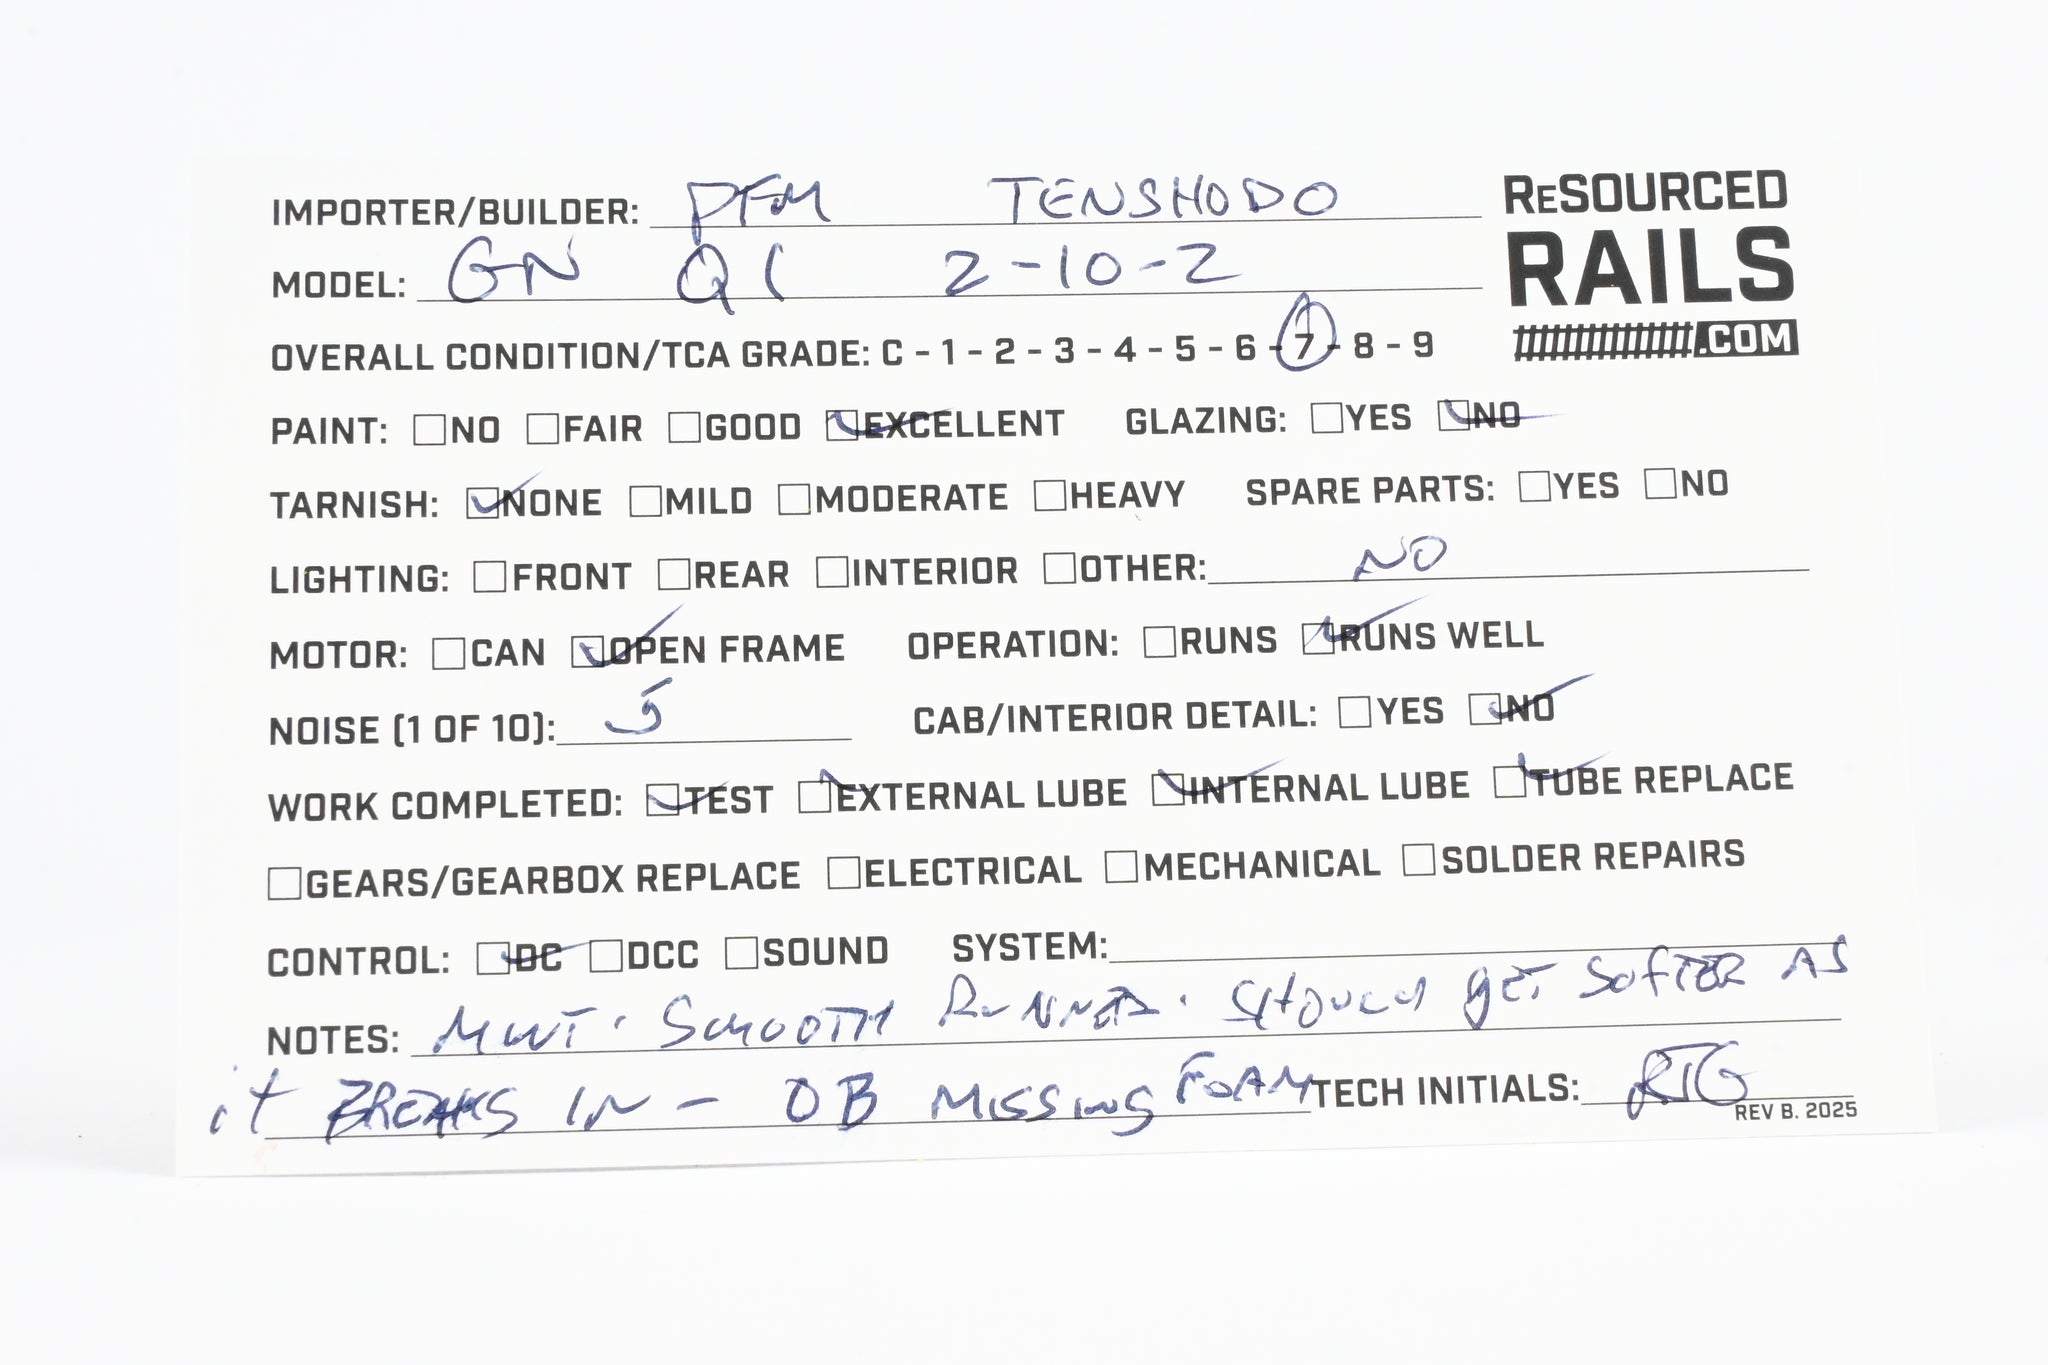 IMPORTER/BUILDER: PFM TENSHODO
RESOURCED
RAILS
.COM
MODEL: GN Q1 2-10-2
OVERALL CONDITION/TCA GRADE: C - 1 - 2 - 3 - 4 - 5 - 6 - 7 - 8 - 9
PAINT: ☐NO ☐FAIR ☐GOOD ☑EXCELLENT GLAZING: ☐YES ☑NO
TARNISH: ☑NONE ☐MILD ☐MODERATE ☐HEAVY SPARE PARTS: ☐YES ☐NO
LIGHTING: ☐FRONT ☐REAR ☐INTERIOR ☐OTHER: NO
MOTOR: ☐CAN ☑OPEN FRAME OPERATION: ☐RUNS ☑RUNS WELL
NOISE (1 OF 10): 5 CAB/INTERIOR DETAIL: ☐YES ☑NO
WORK COMPLETED: ☑TEST ☑EXTERNAL LUBE ☑INTERNAL LUBE ☑TUBE REPLACE
☐GEARS/GEARBOX REPLACE ☐ELECTRICAL ☐MECHANICAL ☐SOLDER REPAIRS
CONTROL: ☑DC ☐DCC ☐SOUND SYSTEM:
NOTES: SMOOTH RUNNER. SHOULD GET SOFTER AS
it BREAKS IN - OB MISSING FOAM TECH INITIALS: RTG
REV B. 2025